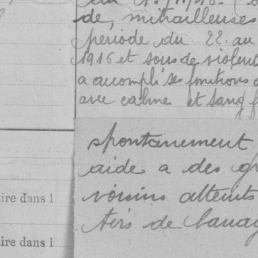 de, mitrailleuses
période du 22 au
1916 et sous de violent
a accompli ses fonctions
avec calme et sang f
spontanement
aide a des gr
voisins atteints
tirs de barrag
ire dans l
ire dans l